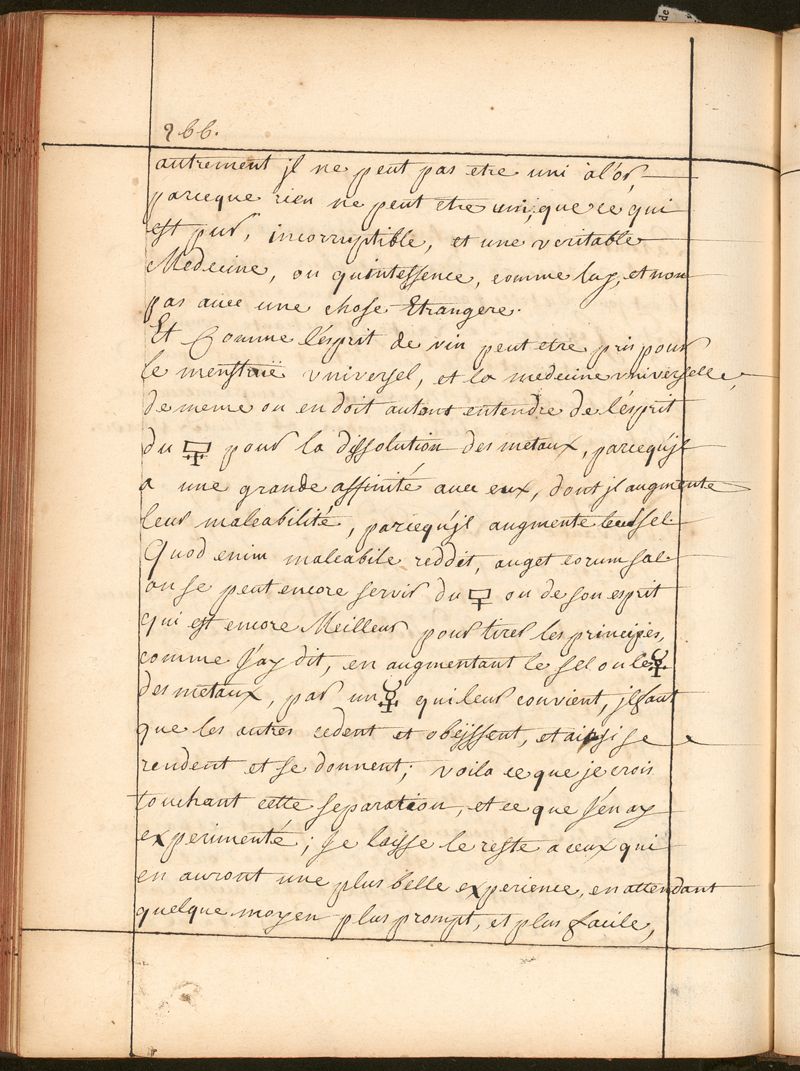 266.
autrement jl ne peut pas etre uni à l'or
parceque rien ne peut etre uni, que ce qui
est pur, incorruptible, et une veritable
Medecine, ou quintessence, comme luy, et non
pas avec une chose Etrangere.
Et Comme l'esprit de vin peut etre pris pour
le menstruë vniversel, et la medecine vniverselle,
de meme on en doit autant entendre de l'esprit
du pour la dissolution des metaux, parcequ'jl
a une grande affinité avec eux, dont jl augmente
leur maleabilité, parcequ'jl augmente leur sel
Quod enim maleabile reddit, auget eorum sal
on se peut encore servir du ou de son esprit
qui est encore Meilleur pour tirer les principes,
comme J'ay dit, en augmentant le sel ou le ☿
des metaux, par un ☿ qui leur convient, jl faut
que les autres cedent et obeÿssent, et ainsi se
rendent et se donnent; voila ce que je crois
touchant cette separation, et ce que J'en ay
experimenté; Je laisse le reste a ceux qui
en auront une plus belle experience, en attendant
quelque moyen plus prompt, et plus facile,